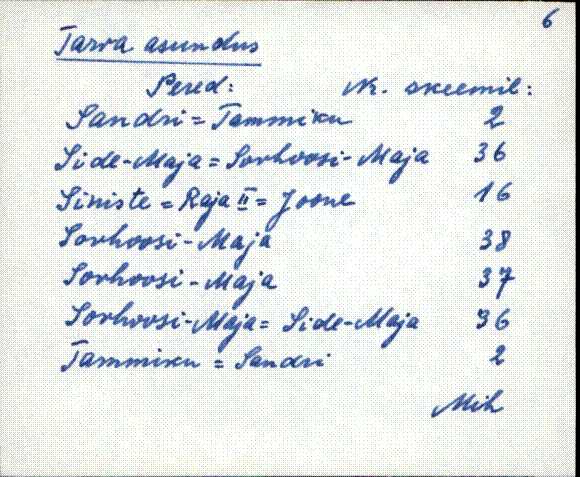 6
Tarva asundus
Pered: Nr. skeemil:
Sandri = Tammiku 2
Side-Maja = Sorhoosi-Maja 36
Siniste = Raja II = Joone 16
Sorhoosi-Maja 38
Sorhoosi-Maja 37
Sorhoosi-Maja = Side-Maja 36
Tammiku = Sandri 2
Mih